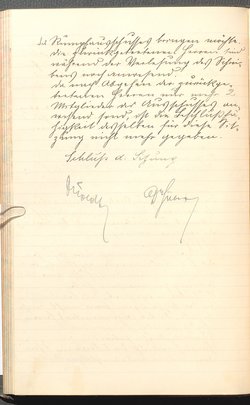 des Ausschusses bringen möchte.
die zurückgetretenen Herren sind
während der Verlesung des Schrei-
bens noch anwesend.
da nach Abgehen der zurückge-
tretenen Herren nur mehr 2
Mitglieder des Ausschusses an-
wesend sind, ist die Beschlußfä-
higkeit desselben für diese Sit-
zung nicht mehr gegeben.
Schluß d. Sitzung